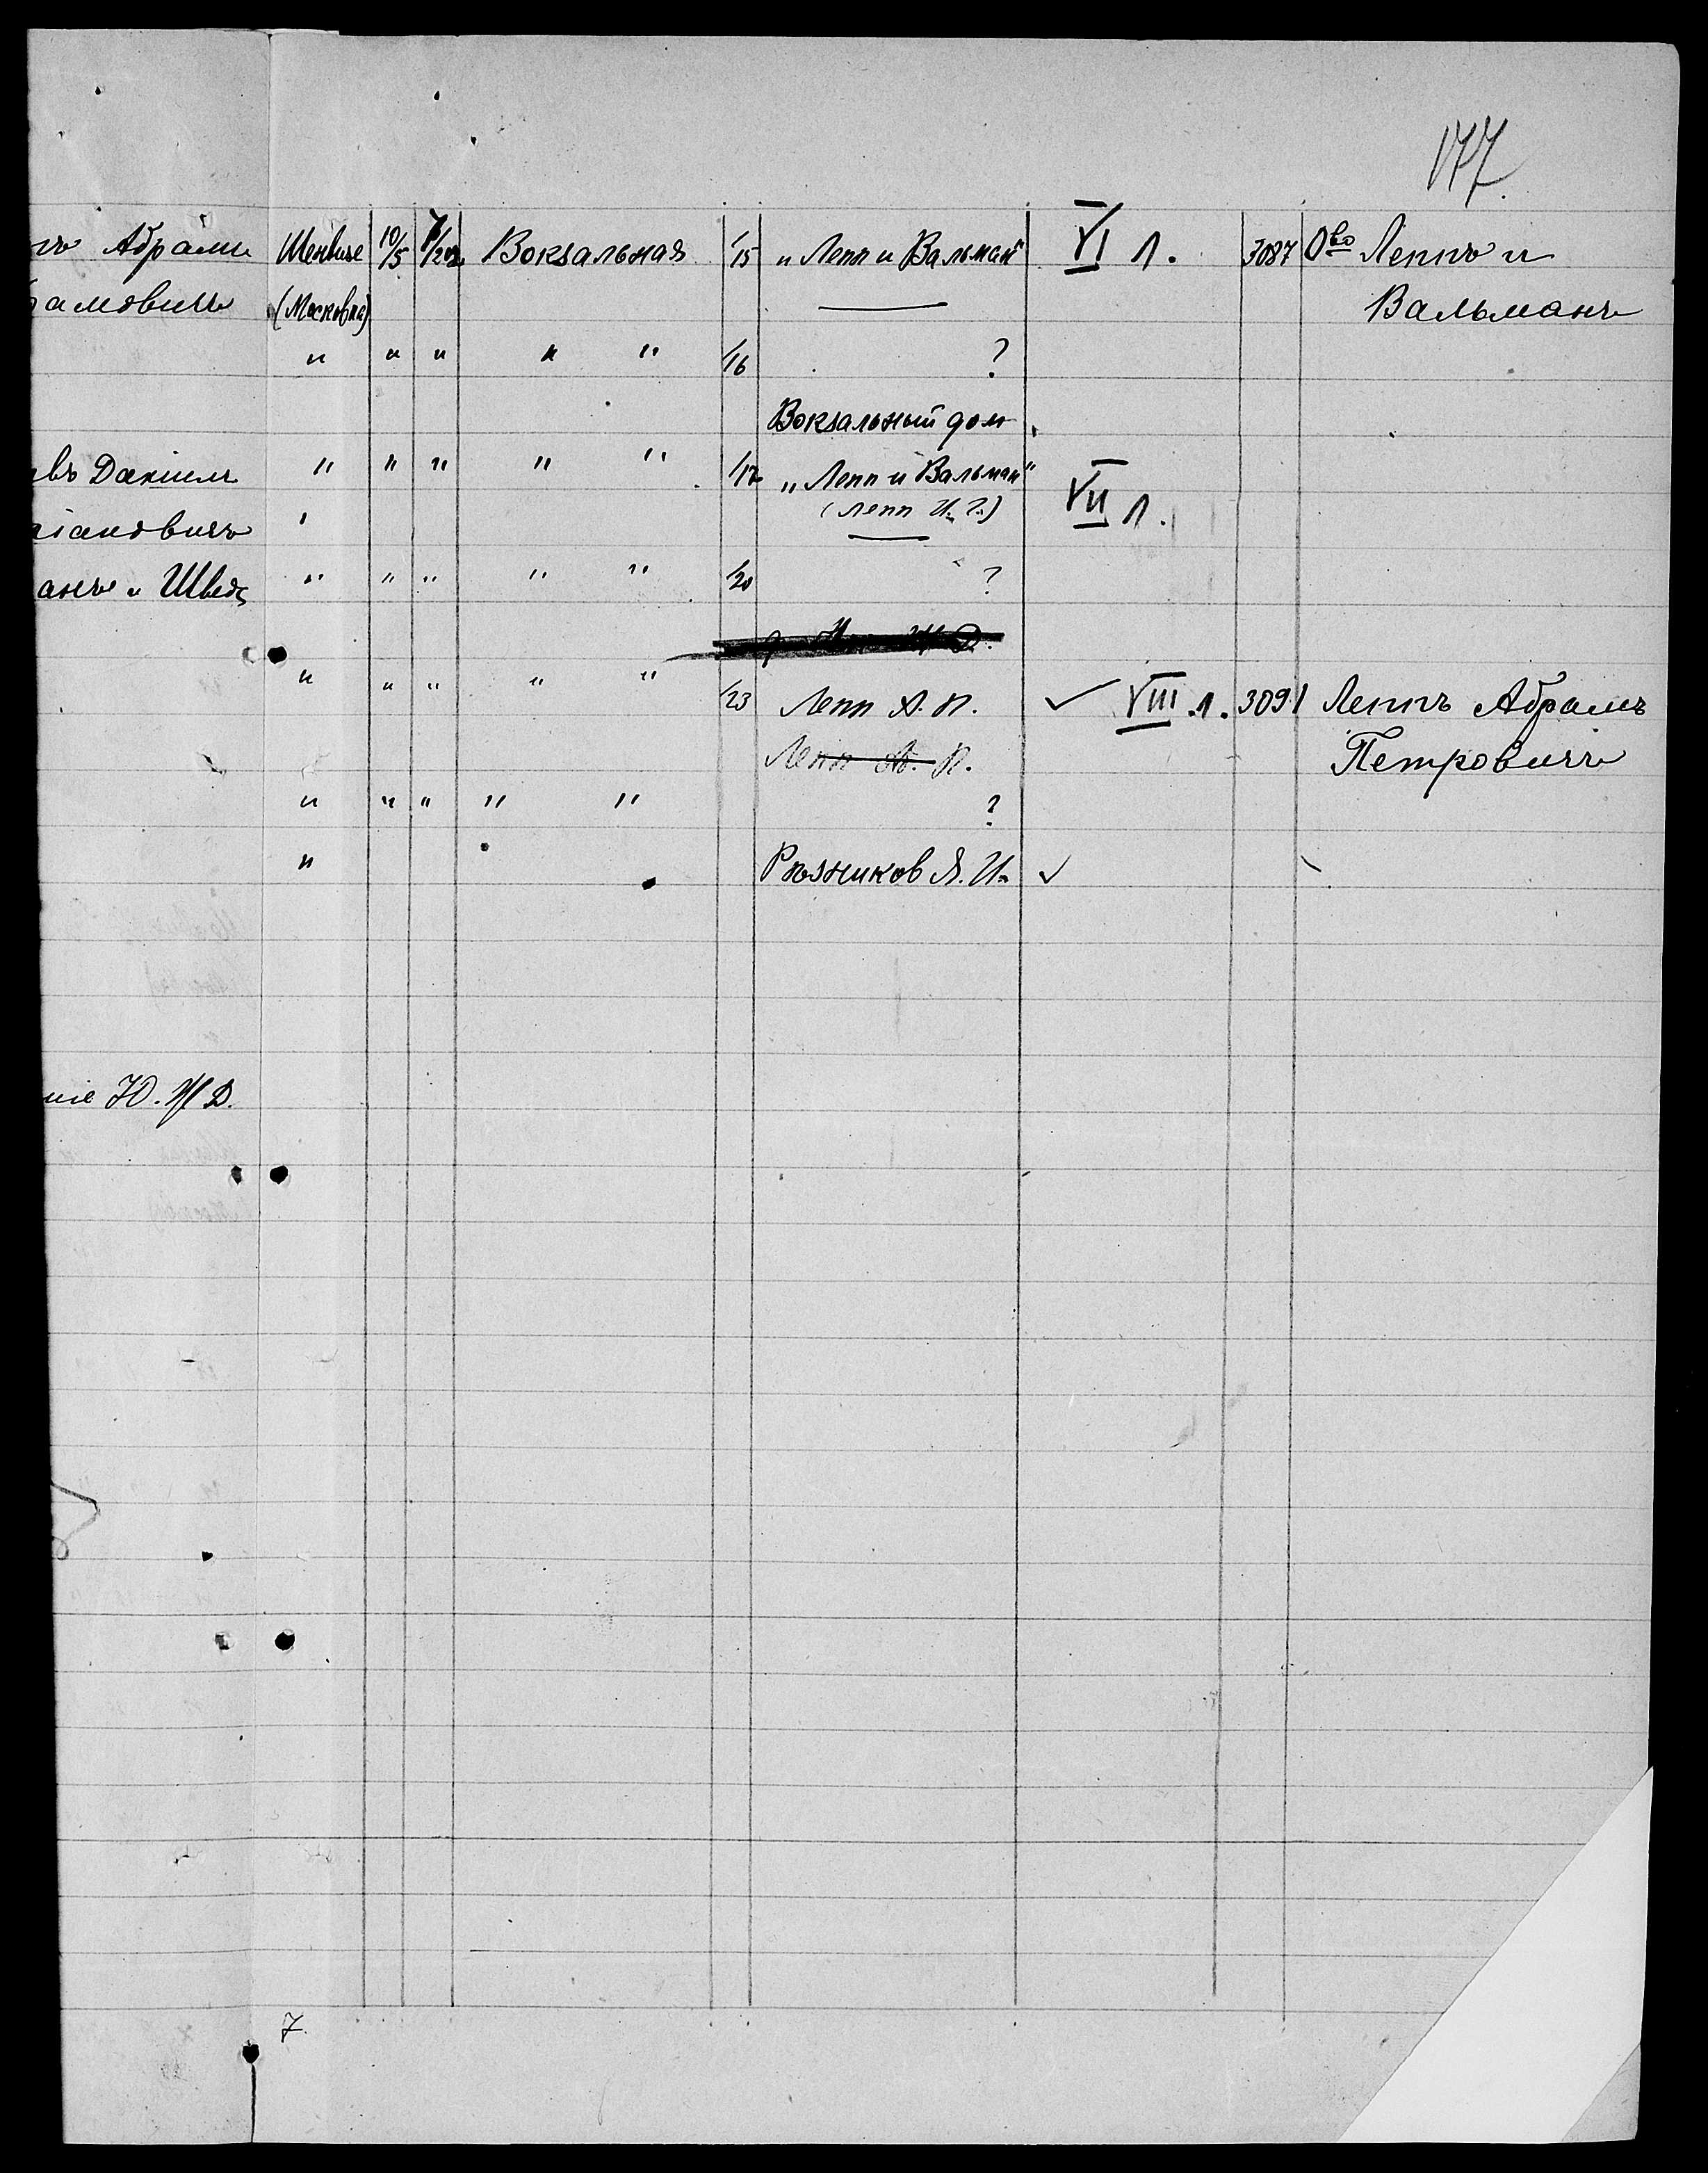 177.
Абрамъ Шенвизе 10/5 Вокзальная /15 „Лепп и Вальман" VI л. 3087 О-во Леппъ и
амовичъ (Московка) Вальманъ
" " " " " /16 ?
Вокзальный дом
въ Данiилъ " " " " " /17 „Лепп и Вальман"
(Лепп И. Г.) VII л.
iановичъ
анъ и Шведъ " " " " " /20 ?
" " " " " /23 Лепп А. П. ✓ VIII л. 3091 Леппъ Абрамъ
Лепп А. П. Петровичъ
" " " " " ?
" Рѣзников Я. И. ✓
нiе Ю. Ж. Д.
7.